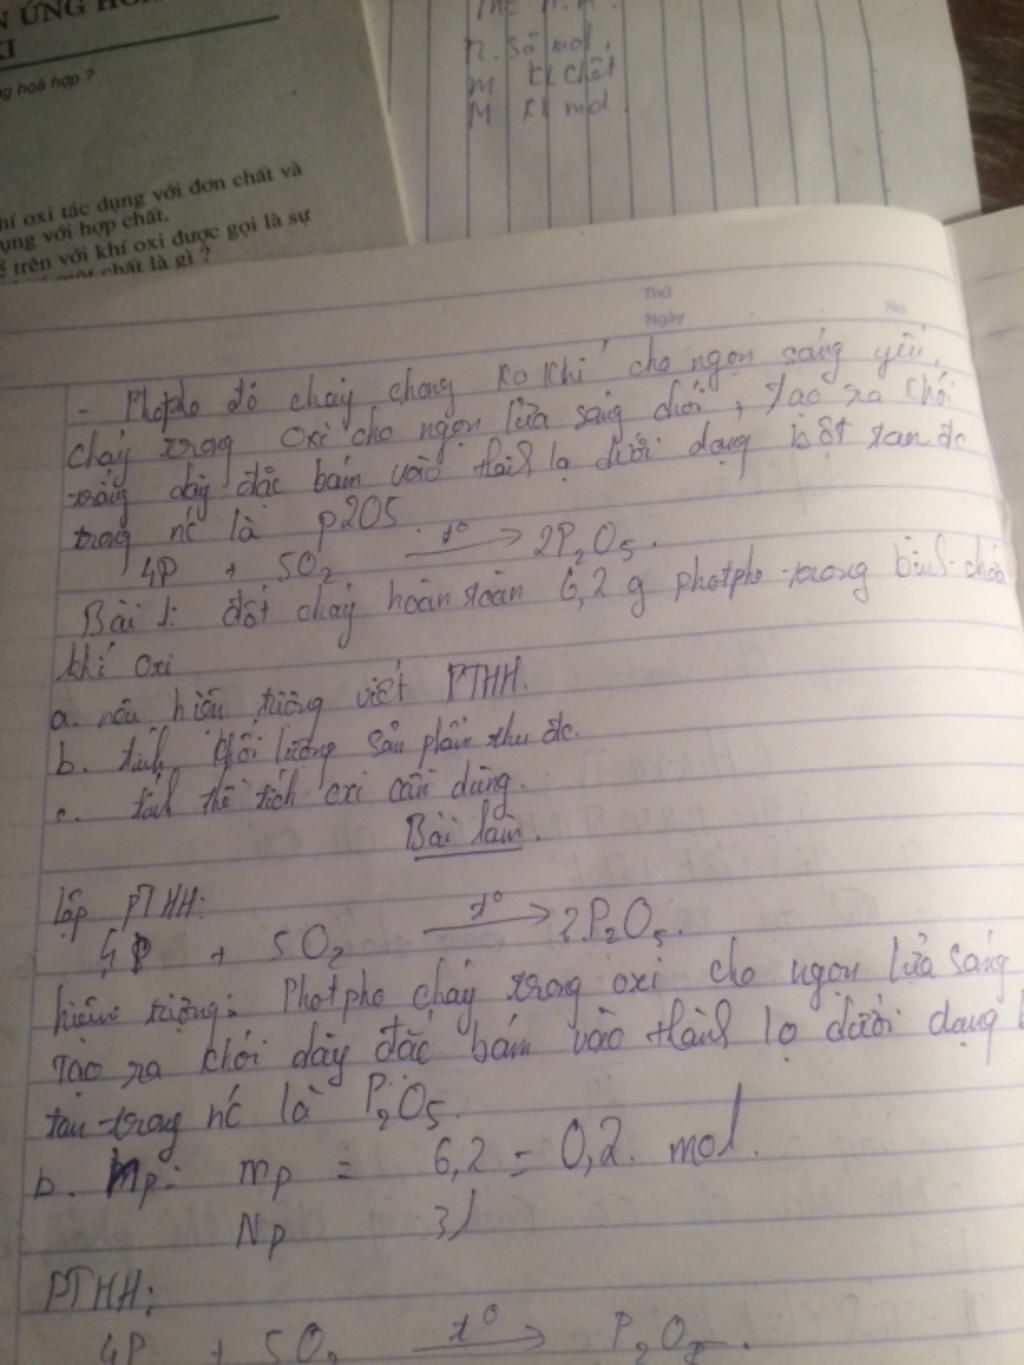 N ỨNG HO
XI
ng hoá hợp ?
hí oxi tác dụng với đơn chất và
ụng với hợp chất.
ể trên với khí oxi được gọi là sự
một chất là gì ?
n. số mol.
m KL chất
M KL mol.
Thứ
Ngày
No.
- Photpho đỏ cháy chong ko khí cho ngọn sáng yếu,
cháy trong oxi cho ngọn lửa sáng chói, tạo ra khói
trắng dày đặc bám vào thành lọ dưới dạng bột tan đc
trong nc là p2O5
4P + 5O₂ t° → 2P₂O₅.
Bài 1: đốt cháy hoàn toàn 6,2 g photpho trong bình chứa
khí oxi
a. nêu hiện tượng viết PTHH.
b. tính khối lượng sản phẩm thu đc.
c. tính thể tích oxi cần dùng.
Bài làm.
lập PTHH:
4P + 5O₂ t° → 2P₂O₅.
hiện tượng: Photpho cháy trong oxi cho ngọn lửa sáng
Tạo ra khói dày đặc bám vào thành lọ dưới dạng b
tan trong nc là P₂O₅.
b. Mp: mp = 6,2 = 0,2 mol.
Np 31
PTHH:
4P + 5O₂ t° → P₂O₅.